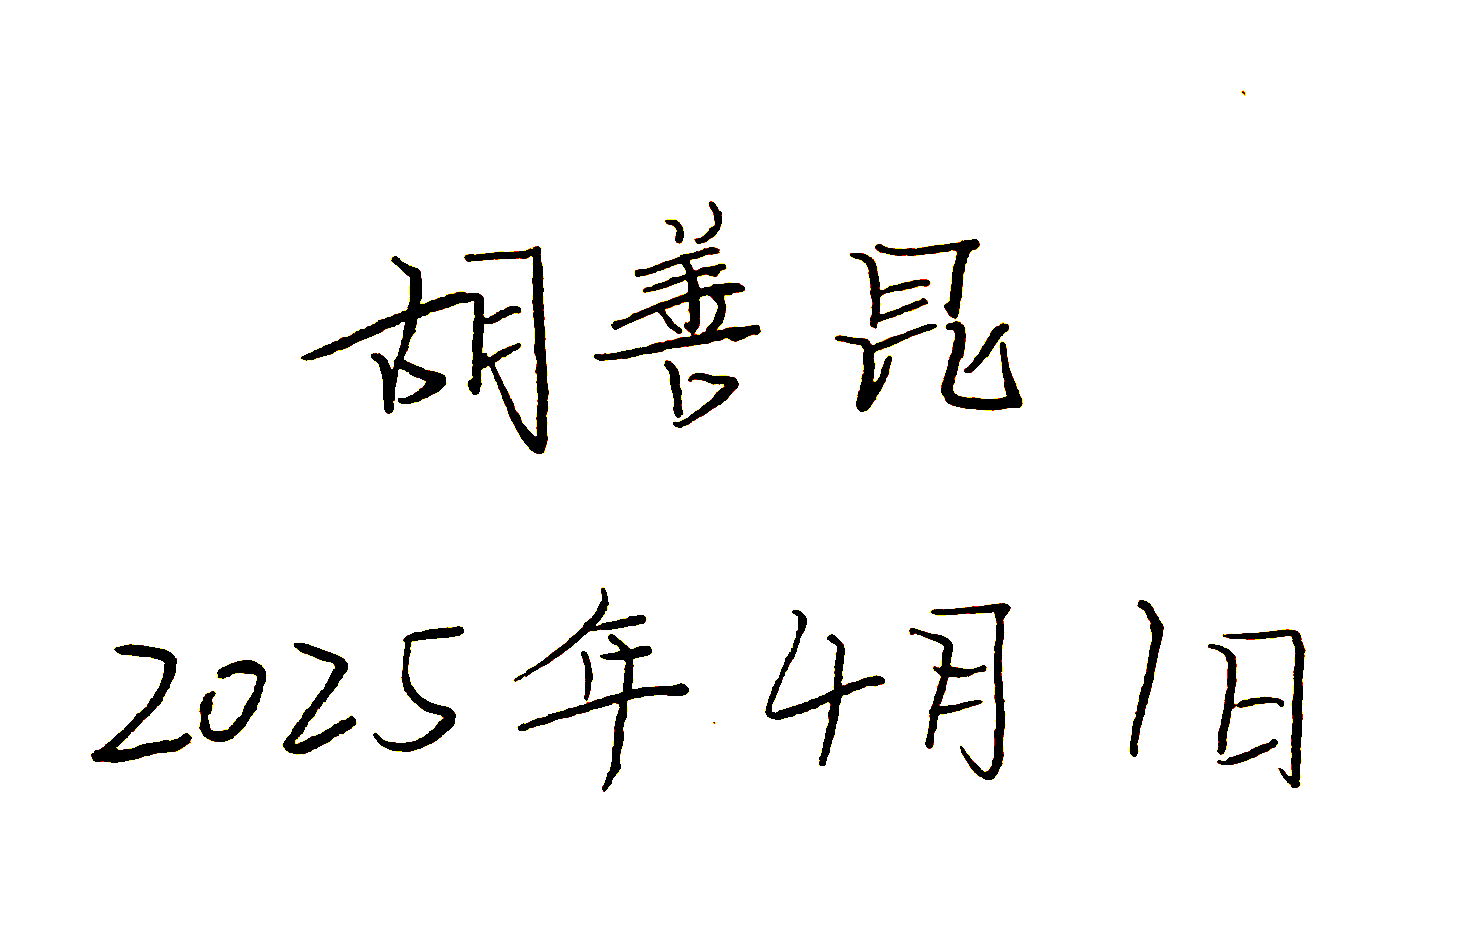 胡善昆
2025年4月1日